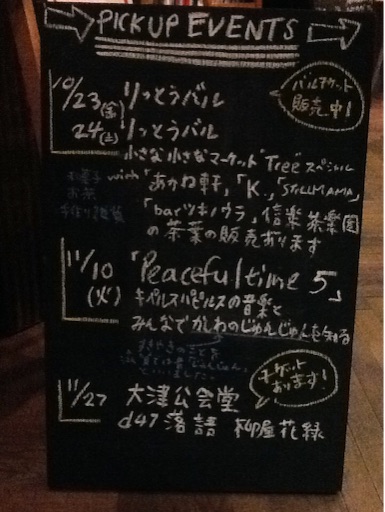 PICKUP EVENTS
バルチケット
販売中!
10/23(金) りっとうバル
24(土) りっとうバル
小さな小さなマーケット"Tree"スペシャル
お菓子
お茶
手作り雑貨
with「あかね軒」,「K.」,「STILLMAMA」
「barツキノウラ」,信楽茶楽園
の茶葉の販売あります
11/10 「Peacefultime 5」
(火) キペルスパルスの音楽と
みんなでかしわのじゅんじゅんを知る
チケット
あります!
11/27 大津公会堂
d47落語 柳屋花緑